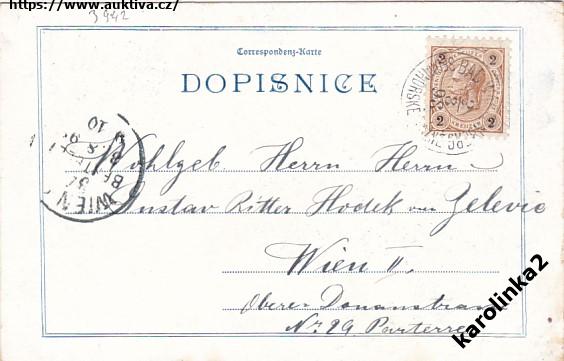 https://www.auktiva.cz/
3942
Correspondenz-Karte
DOPISNICE
2 2
2 2
WIEN
Wohlgeb Herrn Herrn
Gustav Ritter Hodek von Zelevic
Wien II.
Obere Donaustrasse
No 29 Parterre
karolinka2